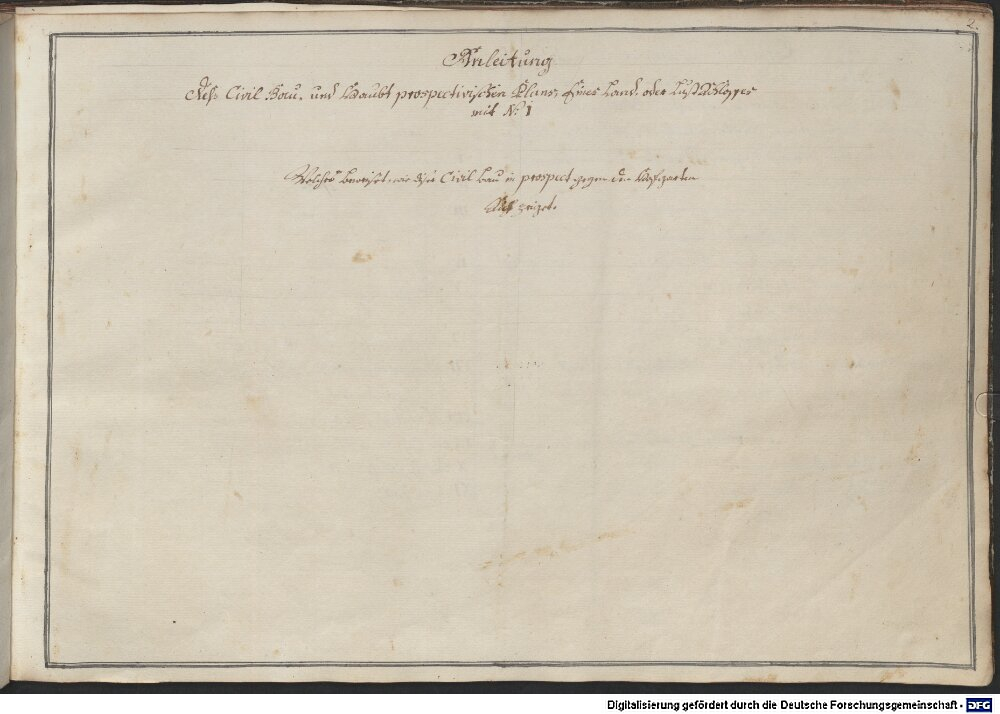 2.
Anleitung
Deß Civil Bau, und Haubt prospectivischen Plans, Eines Land- oder Lust Schlosses
mit N: 1
Welcher beweiset wie diser Civil bau in prospect gegen den Hofgarten
Sich zeiget.
Digitalisierung gefördert durch die Deutsche Forschungsgemeinschaft - DFG